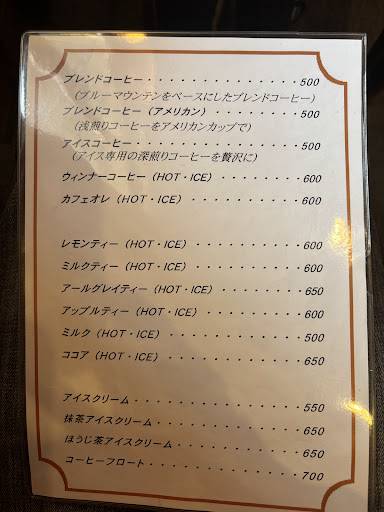 ブレンドコーヒー・・・・・・・・・・・・・・・500
(ブルーマウンテンをベースにしたブレンドコーヒー)
ブレンドコーヒー(アメリカン)・・・・・・・・・500
(浅煎りコーヒーをアメリカンカップで)
アイスコーヒー・・・・・・・・・・・・・・・・500
(アイス専用の深煎りコーヒーを贅沢に)
ウィンナーコーヒー(HOT・ICE)・・・・・・・・600
カフェオレ(HOT・ICE)・・・・・・・・・・・・600
レモンティー(HOT・ICE)・・・・・・・・・・・600
ミルクティー(HOT・ICE)・・・・・・・・・・・600
アールグレイティー(HOT・ICE)・・・・・・・・650
アップルティー(HOT・ICE)・・・・・・・・・・600
ミルク(HOT・ICE)・・・・・・・・・・・・・・500
ココア(HOT・ICE)・・・・・・・・・・・・・・650
アイスクリーム・・・・・・・・・・・・・・・・550
抹茶アイスクリーム・・・・・・・・・・・・・・650
ほうじ茶アイスクリーム・・・・・・・・・・・・650
コーヒーフロート・・・・・・・・・・・・・・・700